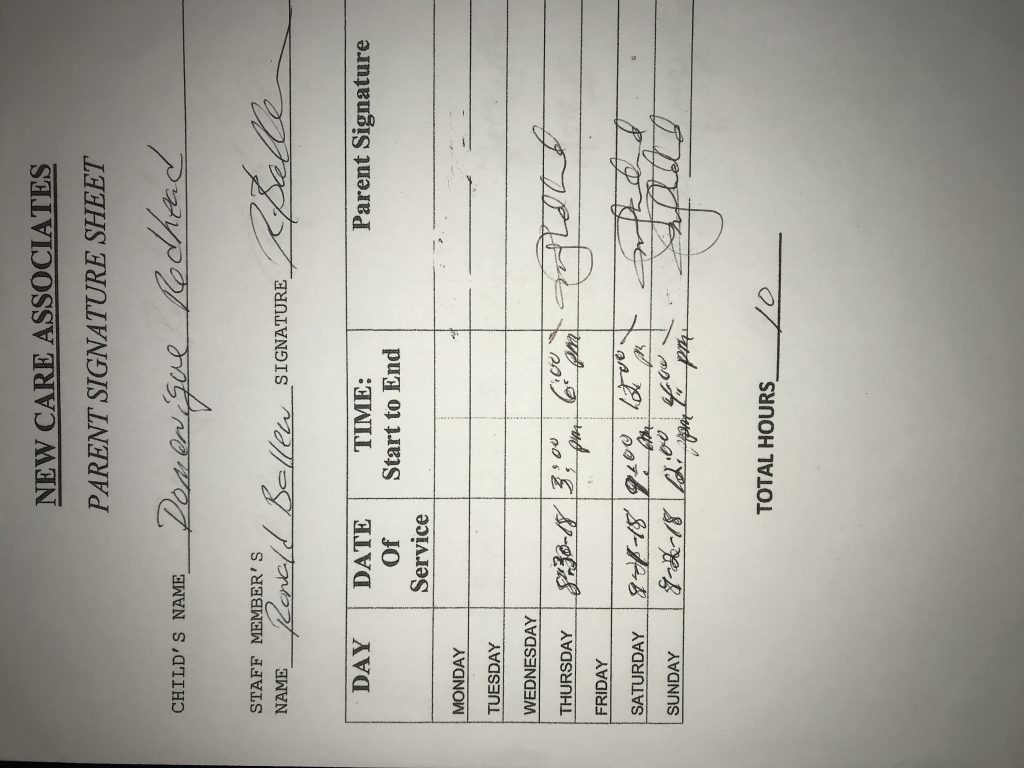 NEW CARE ASSOCIATES
PARENT SIGNATURE SHEET
CHILD'S NAME Domenique Redhead
STAFF MEMBER'S
NAME Ronald Ballen SIGNATURE R. Balle
DAY DATE Of Service TIME: Start to End Parent Signature
MONDAY
TUESDAY
WEDNESDAY
THURSDAY 8-30-18 3:00 pm 6:00 pm
FRIDAY
SATURDAY 9:00 am 12:00 p
SUNDAY 12:00 pm 4:00 pm
TOTAL HOURS 10